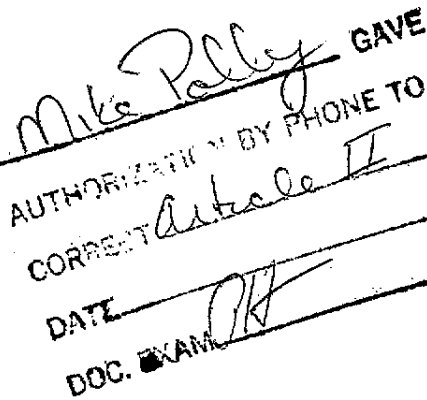 Mike Polly GAVE
AUTHORIZATION BY PHONE TO
CORRECT Article II
DATE
DOC. EXAM